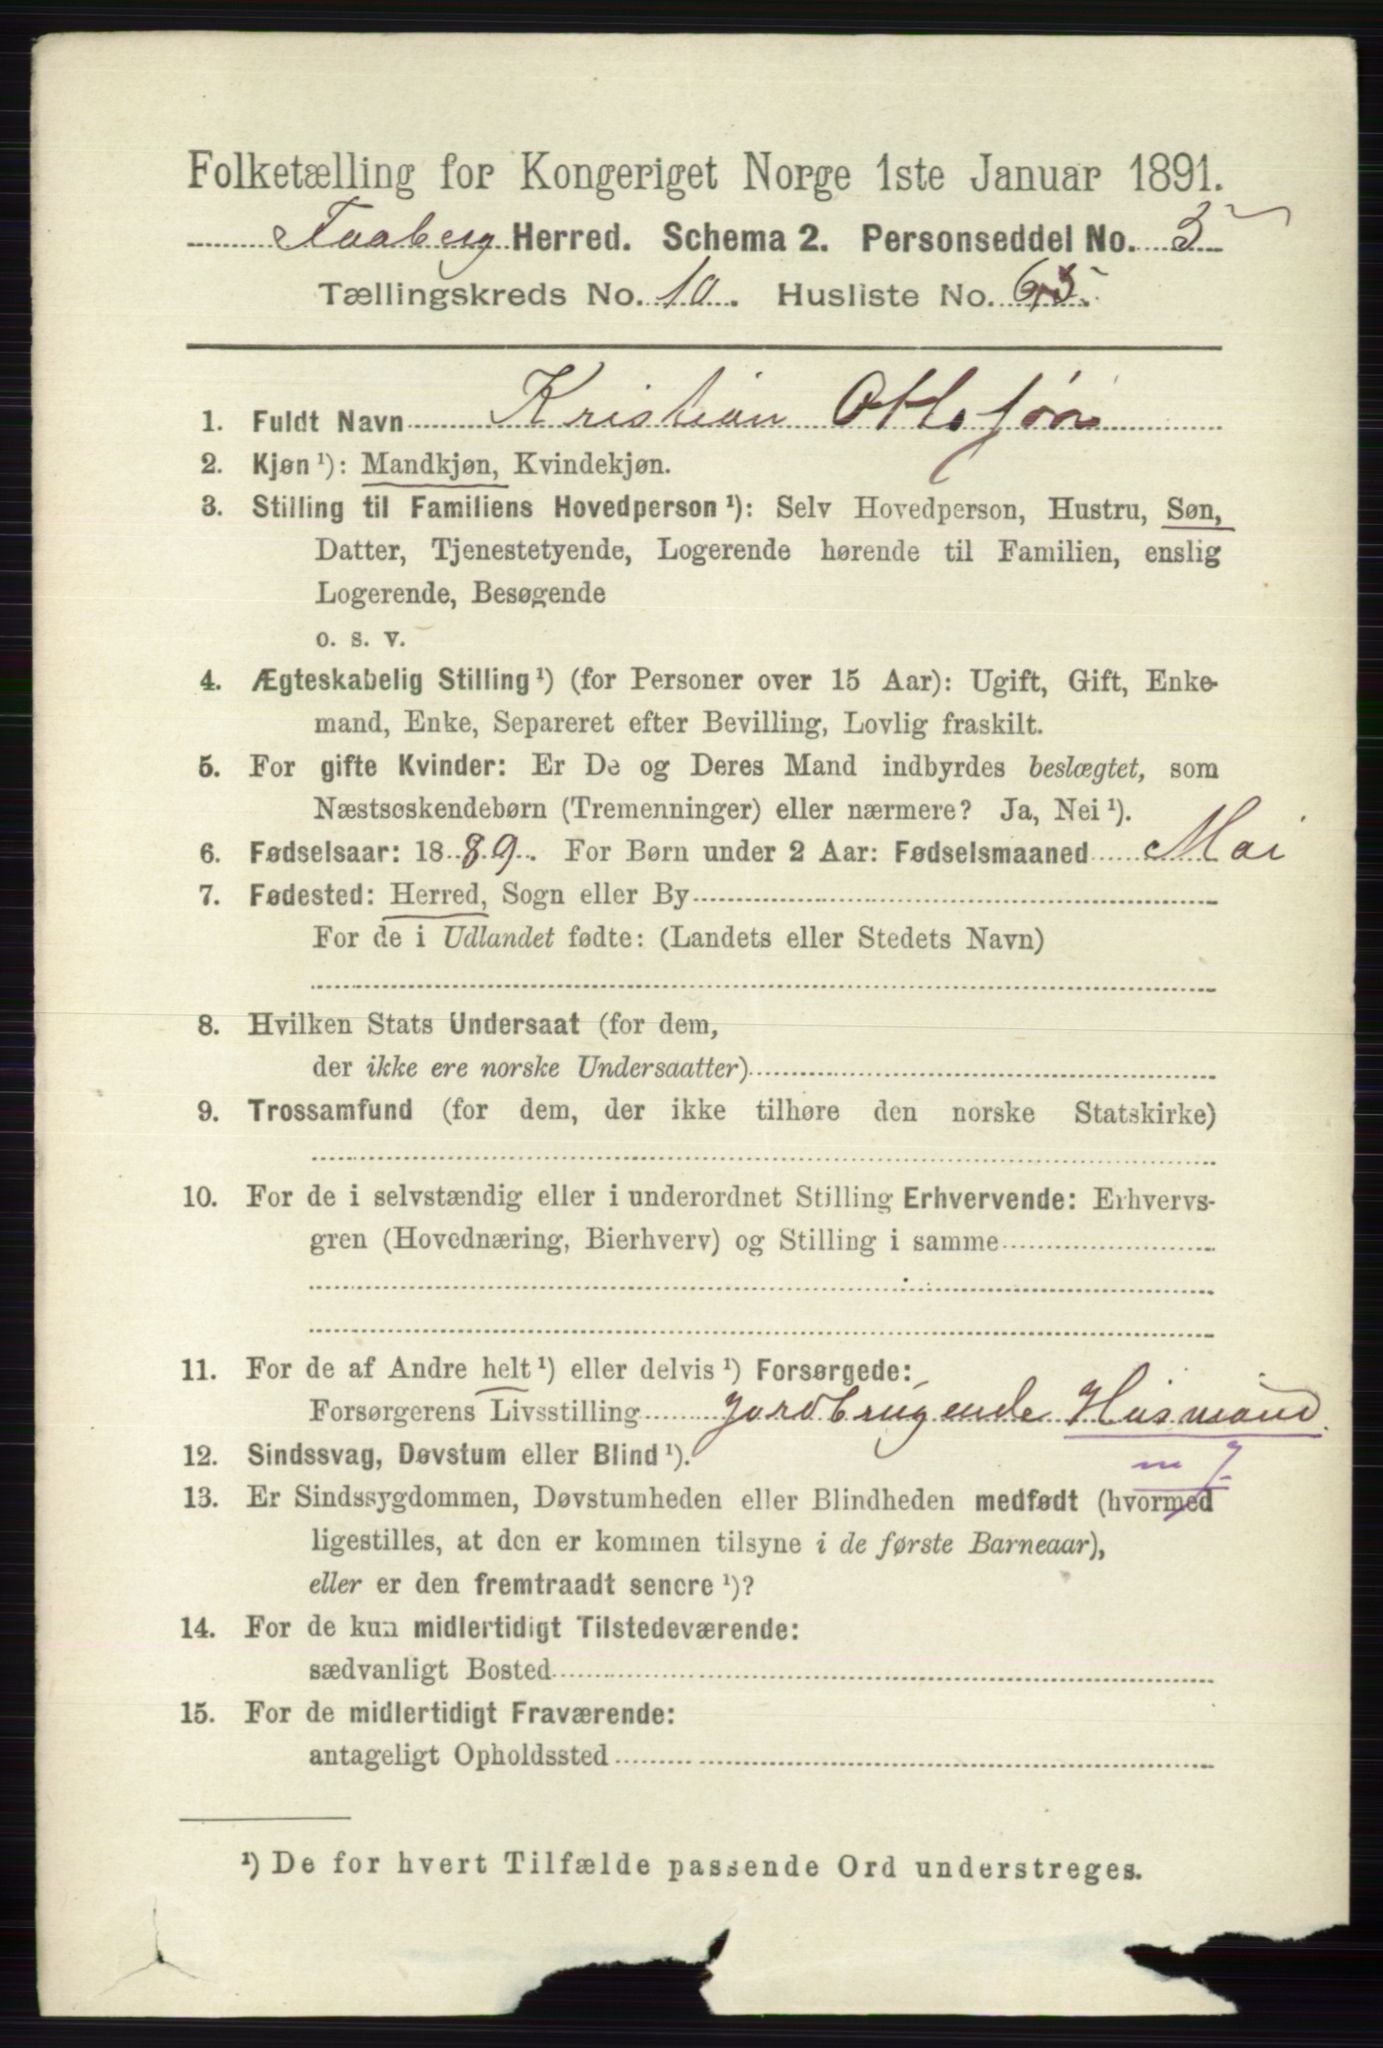 Folketælling for Kongeriget Norge 1ste Januar 1891.
Faaberg Herred. Schema 2. Personseddel No. 5
Tællingskreds No. 10. Husliste No. 65.
1. Fuldt Navn Kristian Ottosøn
2. Kjøn ¹): Mandkjøn, Kvindekjøn.
3. Stilling til Familiens Hovedperson ¹): Selv Hovedperson, Hustru, Søn,
Datter, Tjenestetyende, Logerende hørende til Familien, enslig
Logerende, Besøgende
o. s. v.
4. Ægteskabelig Stilling ¹) (for Personer over 15 Aar): Ugift, Gift, Enke-
mand, Enke, Separeret efter Bevilling, Lovlig fraskilt.
5. For gifte Kvinder: Er De og Deres Mand indbyrdes beslægtet, som
Næstsøskendebørn (Tremenninger) eller nærmere? Ja, Nei ¹).
6. Fødselsaar: 1889. For Børn under 2 Aar: Fødselsmaaned Mai
7. Fødested: Herred, Sogn eller By
For de i Udlandet fødte: (Landets eller Stedets Navn)
8. Hvilken Stats Undersaat (for dem,
der ikke ere norske Undersaatter)
9. Trossamfund (for dem, der ikke tilhøre den norske Statskirke)
10. For de i selvstændig eller i underordnet Stilling Erhvervende: Erhvervs-
gren (Hovednæring, Bierhverv) og Stilling i samme
11. For de af Andre helt ¹) eller delvis ¹) Forsørgede:
Forsørgerens Livsstilling Jordbrugende Husmand.
12. Sindssvag, Døvstum eller Blind ¹). m J
13. Er Sindssygdommen, Døvstumheden eller Blindheden medfødt (hvormed
ligestilles, at den er kommen tilsyne i de første Barneaar),
eller er den fremtraadt senere ¹)?
14. For de kun midlertidigt Tilstedeværende:
sædvanligt Bosted
15. For de midlertidigt Fraværende:
antageligt Opholdssted
¹) De for hvert Tilfælde passende Ord understreges.